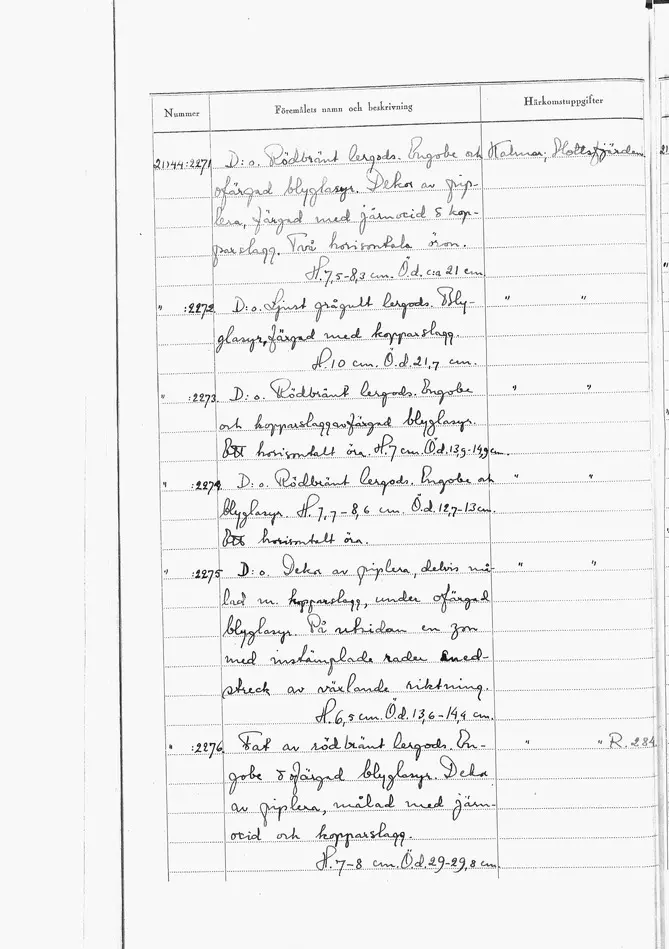 Nummer Föremålets namn och beskrivning Härkomstuppgifter
21144:2271 D:o. Rödbränt lergods. Engobe och Kalmar, Slottsfjärden.
ofärgad blyglasyr. Dekor av pip-
lera, färgad med järnoxid & kop-
parslagg. Två horisontala öron.
H. 7,5–8,3 cm. Ö.d. c:a 21 cm
" :2272 D:o. Ljust grågult lergods. Bly- " "
glasyr, färgad med kopparslagg.
H. 10 cm. Ö.d. 21,7 cm.
" :2273 D:o. Rödbränt lergods. Engobe " "
och kopparslaggsfärgad blyglasyr.
Ett horisontalt öra. H. 7 cm. Ö.d. 13,9–14,9 cm.
" :2274 D:o. Rödbränt lergods. Engobe och " "
blyglasyr. H. 7,7–8,6 cm. Ö.d. 12,7–13 cm.
Ett horisontalt öra.
" :2275 D:o. Dekor av piplera, delvis må- " "
lad m. kopparslagg, under ofärgad
blyglasyr. På utsidan en zon
med instämplade rader sned-
streck av växlande riktning.
H. 6,5 cm. Ö.d. 13,6–14,4 cm.
" :2276 Fat av rödbränt lergods. En- " " R. 284
gobe & ofärgad blyglasyr. Dekor
av piplera, målad med järn-
oxid och kopparslagg.
H. 7–8 cm. Ö.d. 29–29,8 cm.